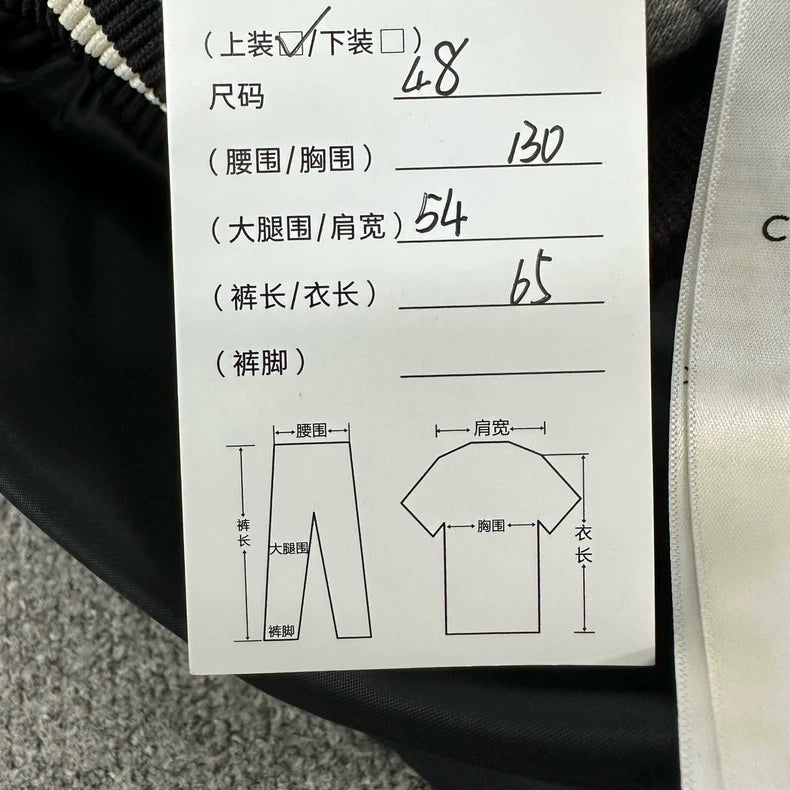 （上装☑/下装□）
尺码 48
（腰围/胸围） 130
（大腿围/肩宽） 54
（裤长/衣长） 65
（裤脚）
腰围
裤长
大腿围
裤脚
肩宽
胸围
衣长
C